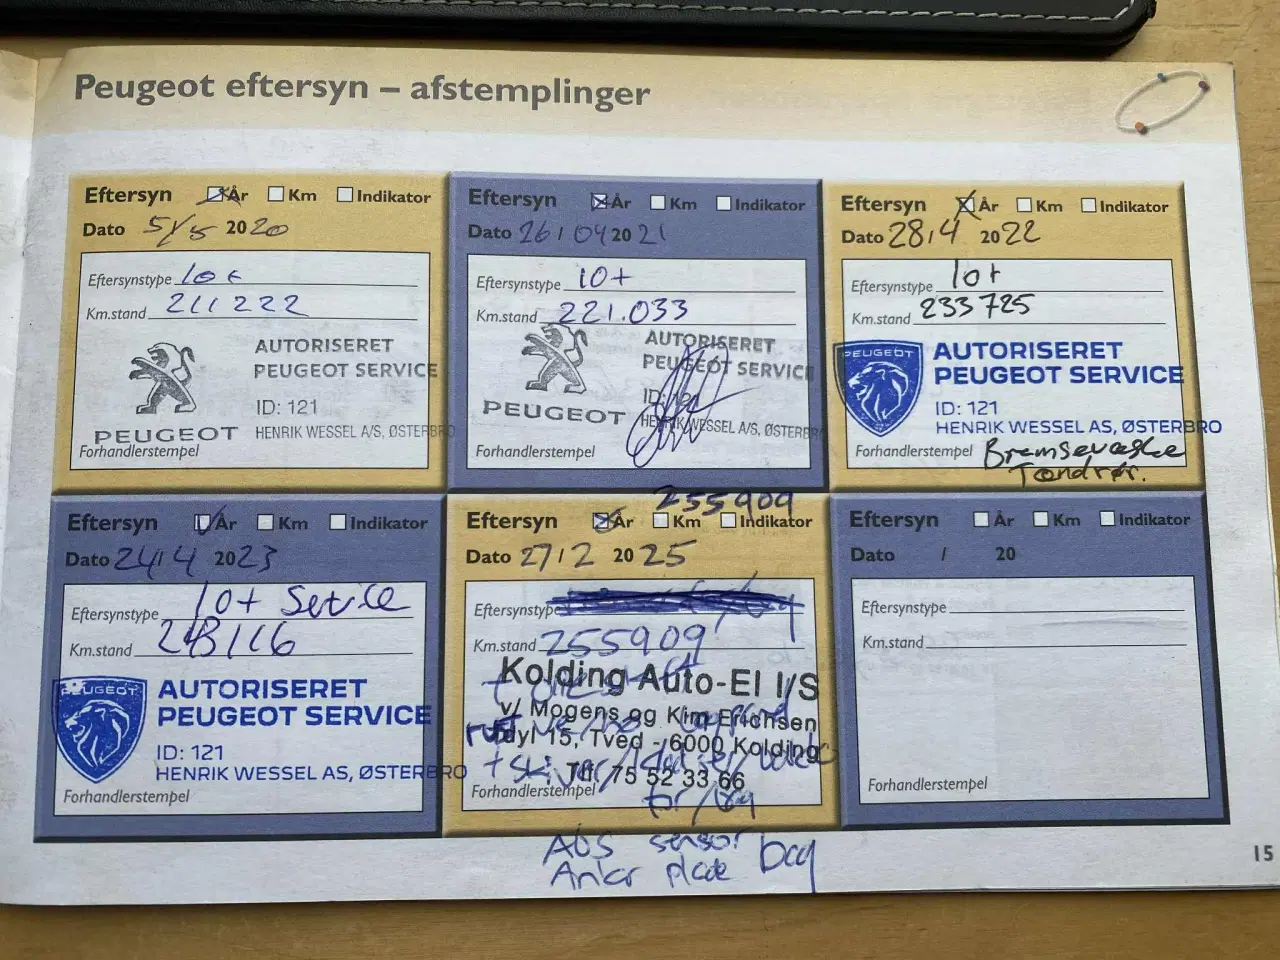 Peugeot eftersyn – afstemplinger
Eftersyn År Km Indikator
Dato 5/5 2020
Eftersynstype 10+
Km.stand 211222
AUTORISERET
PEUGEOT SERVICE
ID: 121
PEUGEOT HENRIK WESSEL A/S, ØSTERBRO
Forhandlerstempel
Eftersyn År Km Indikator
Dato 26/04 2021
Eftersynstype 10+
Km.stand 221.033
AUTORISERET
PEUGEOT SERVICE
ID: 121
PEUGEOT HENRIK WESSEL A/S, ØSTERBRO
Forhandlerstempel
Eftersyn År Km Indikator
Dato 28/4 2022
Eftersynstype 10+
Km.stand 233725
PEUGEOT
AUTORISERET
PEUGEOT SERVICE
ID: 121
HENRIK WESSEL A/S, ØSTERBRO
Forhandlerstempel Bremsevæske
Tændrør.
Eftersyn År Km Indikator
Dato 24/4 2023
Eftersynstype 10+ Service
Km.stand 243116
PEUGEOT
AUTORISERET
PEUGEOT SERVICE
ID: 121
HENRIK WESSEL AS, ØSTERBRO
Forhandlerstempel
255909
Eftersyn År Km Indikator
Dato 27/2 2025
Eftersynstype
Km.stand 255909
Kolding Auto-El I/S
v/ Mogens og Kim Erichsen
15, Tved - 6000 Kolding
Tlf. 75 52 33 66
Forhandlerstempel for/bag
Abs sensor bag
Anker plade
Eftersyn År Km Indikator
Dato / 20
Eftersynstype
Km.stand
Forhandlerstempel
15